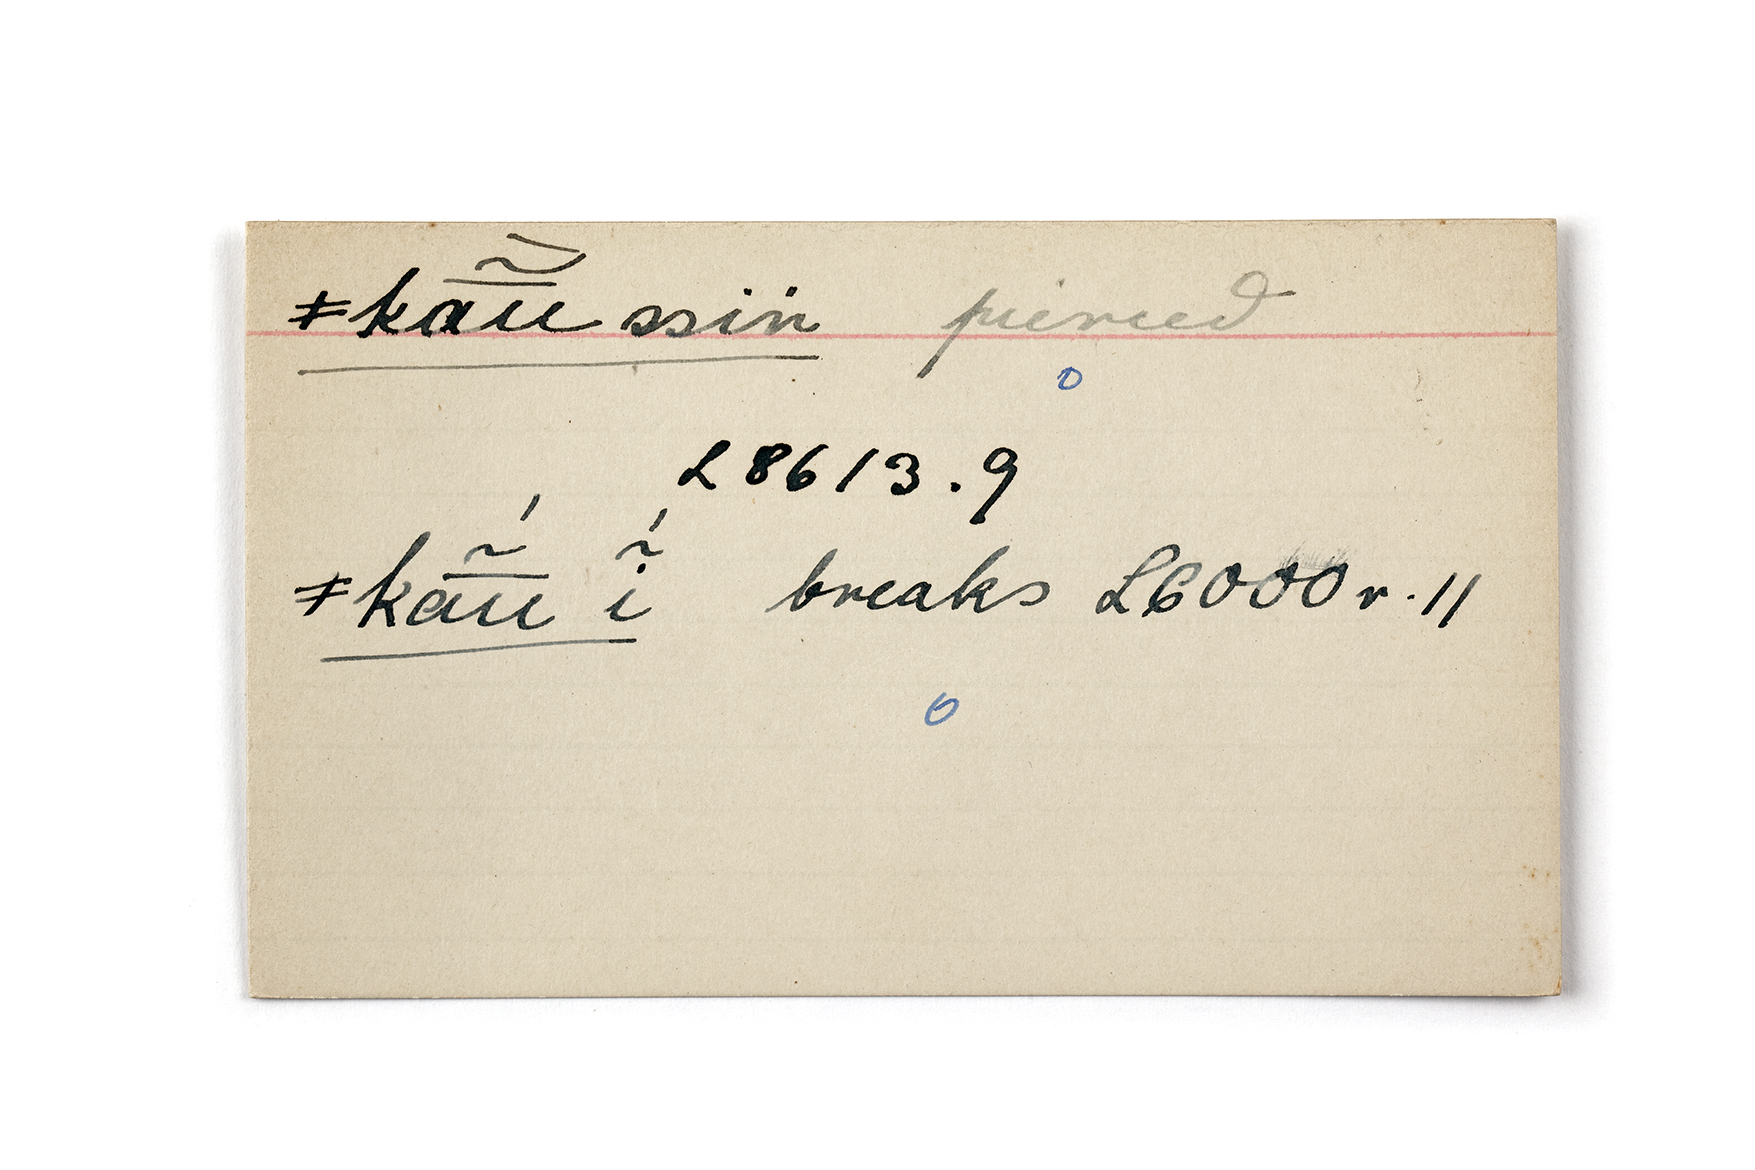 ǂkā̃ũ ssin pierced
o
L 8613.9
ǂkā̃ṹ ĩ́ breaks L6000 r. 11
o